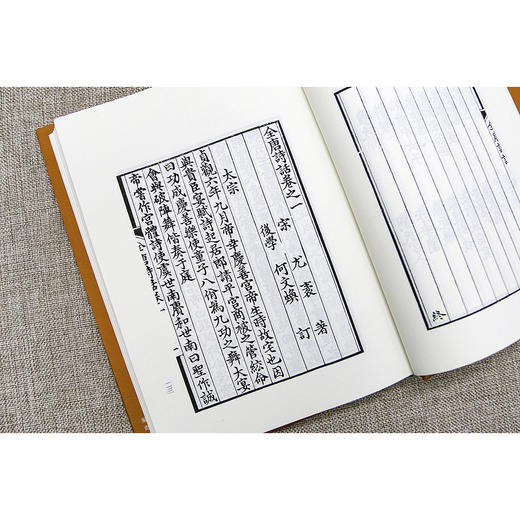 全唐詩話卷之一
宋 尤袤 著
後學 何文煥 訂
太宗
貞觀六年九月帝幸慶善宮帝生時故宅也因
與貴臣宴賦詩起居郎請平宮商被之管絃命
曰功成慶善樂使童子八佾為九功之舞大宴
會與破陣舞偕奏于庭
帝嘗作宮體詩使虞世南賡和世南曰聖作誠
一三
終